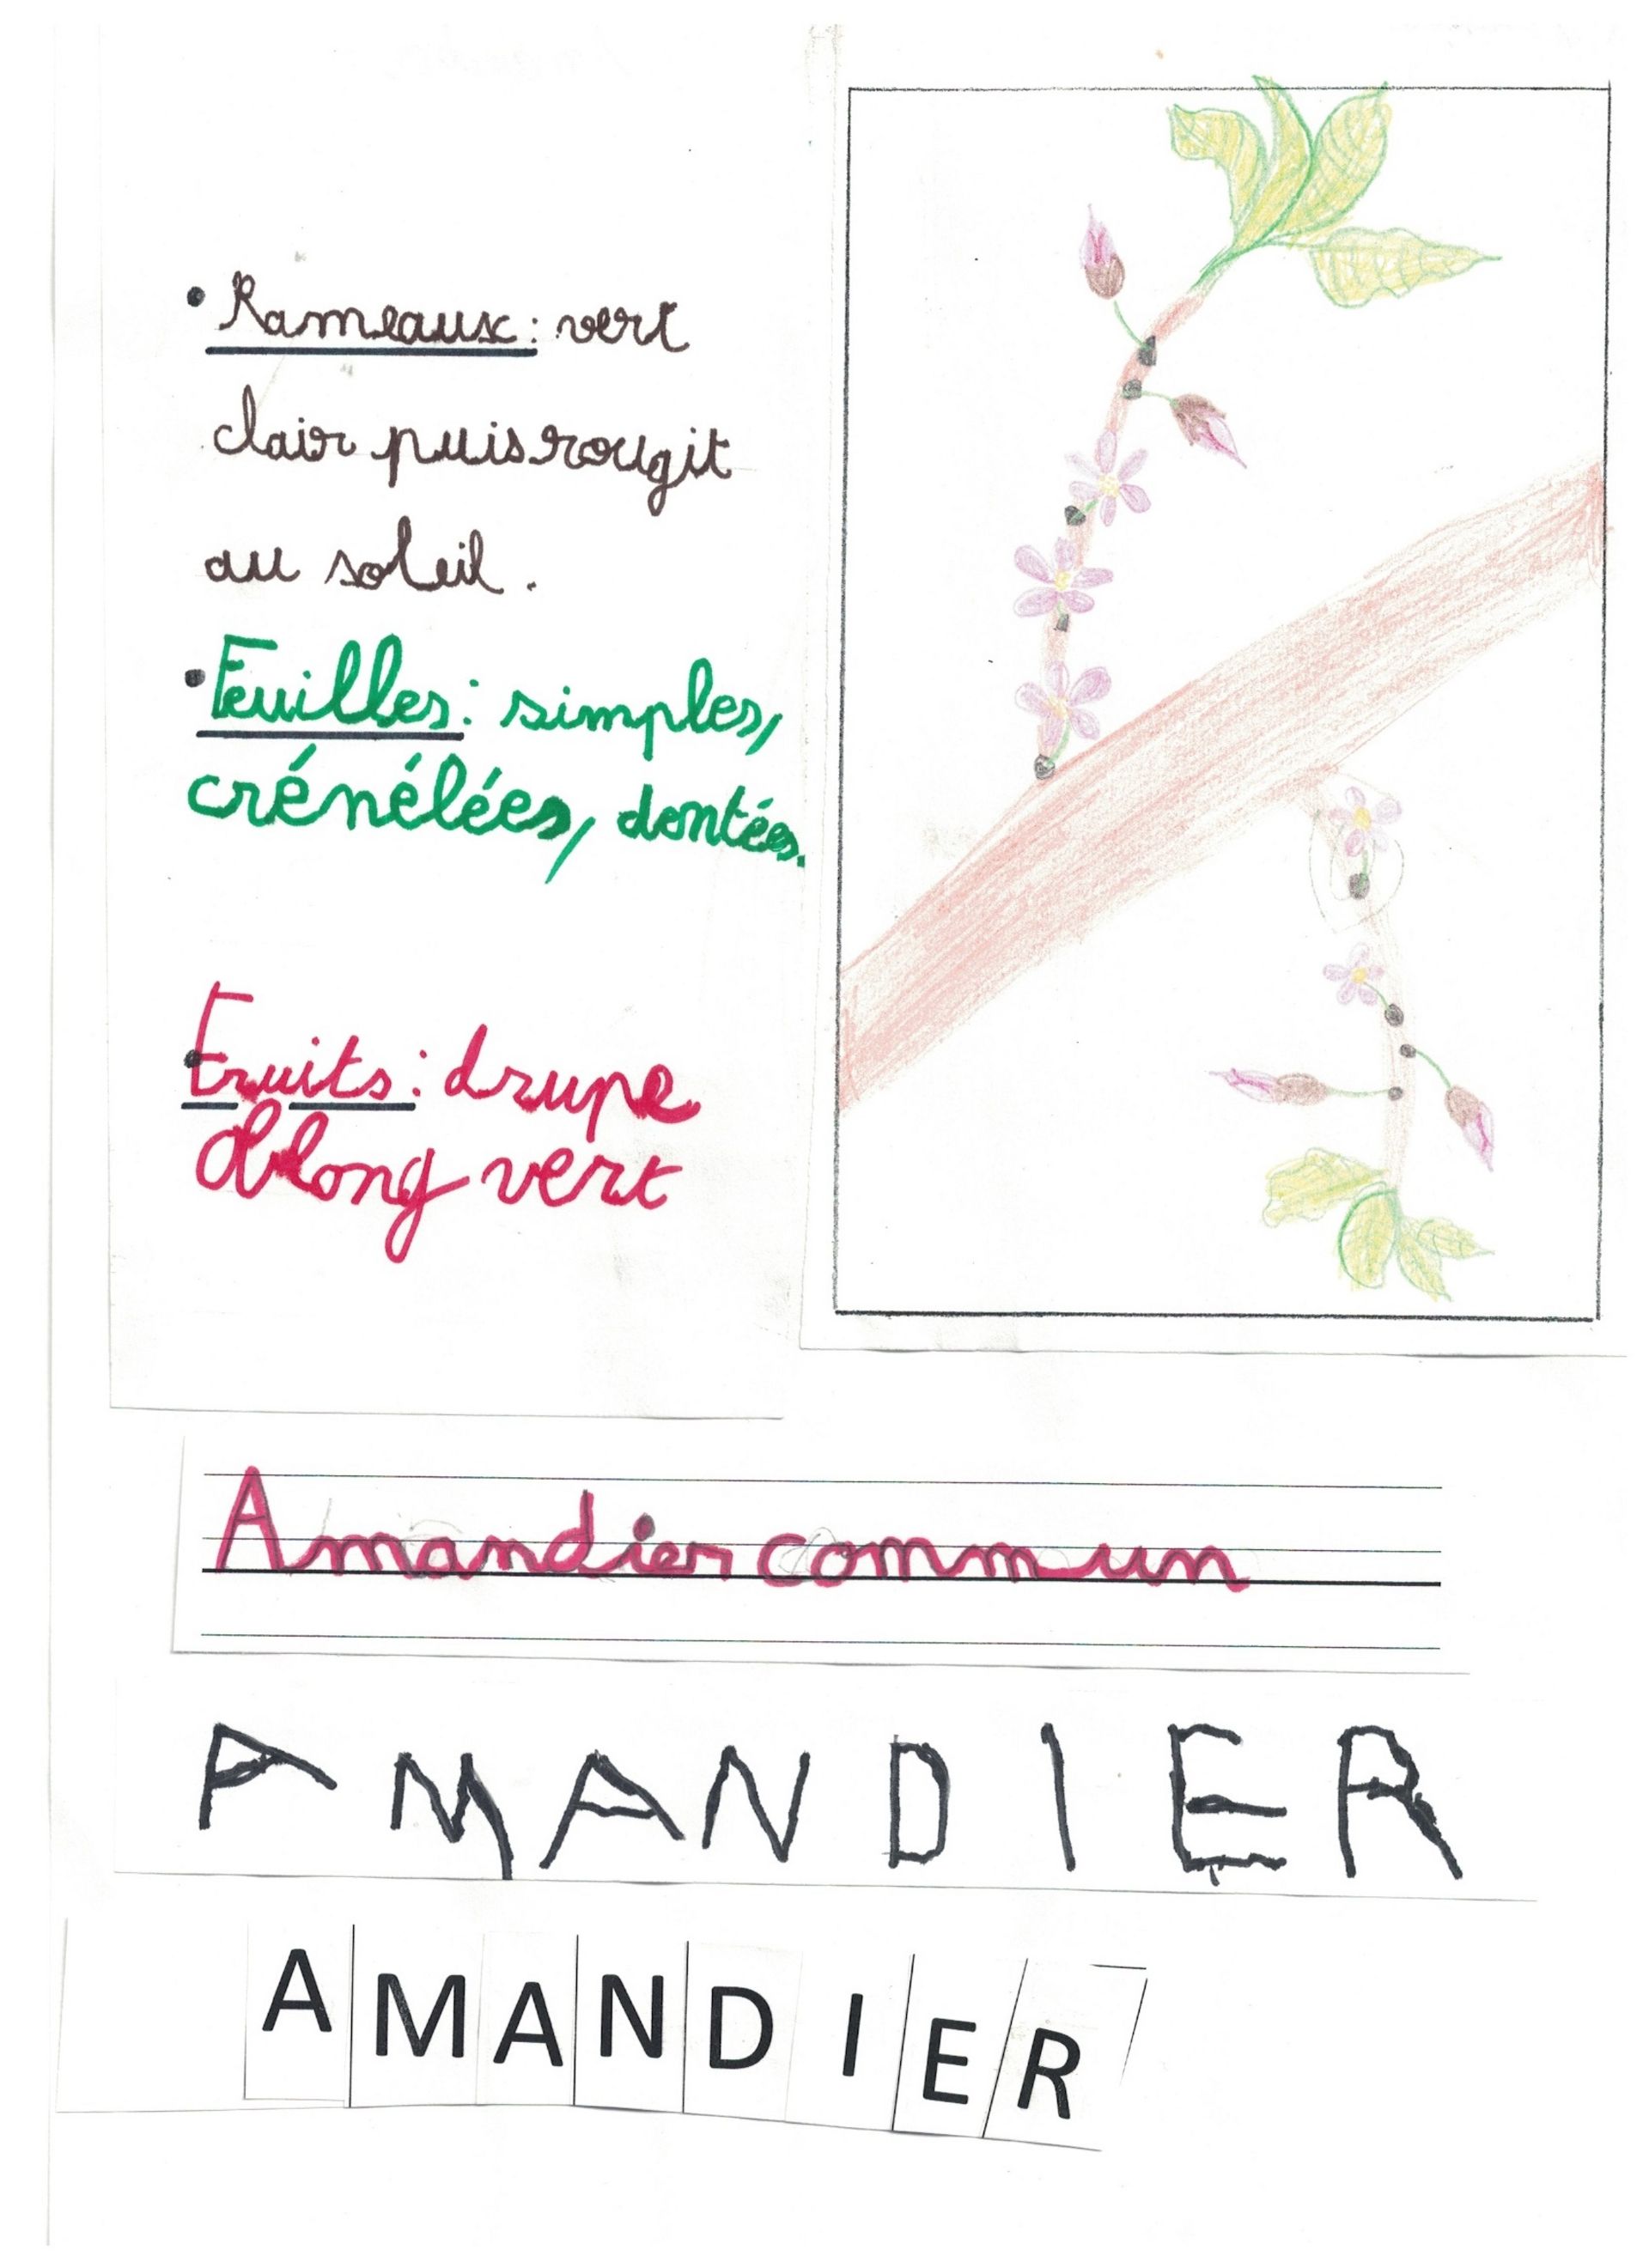 • Rameaux : vert
clair puis rougit
au soleil.
• Feuilles : simples,
crénélées, dentées.
• Fruits : drupe
oblong vert
Amandier commun
AMANDIER
AMANDIER